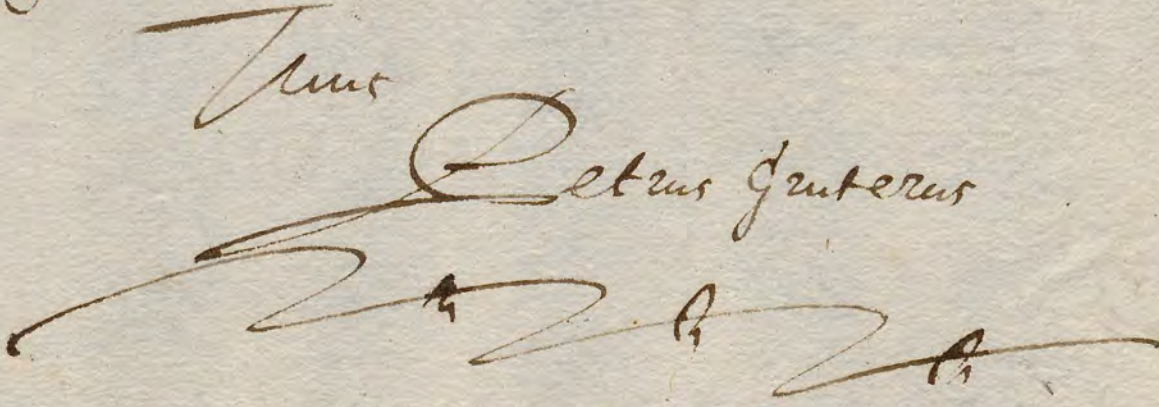 Tuus
Petrus Gruterus